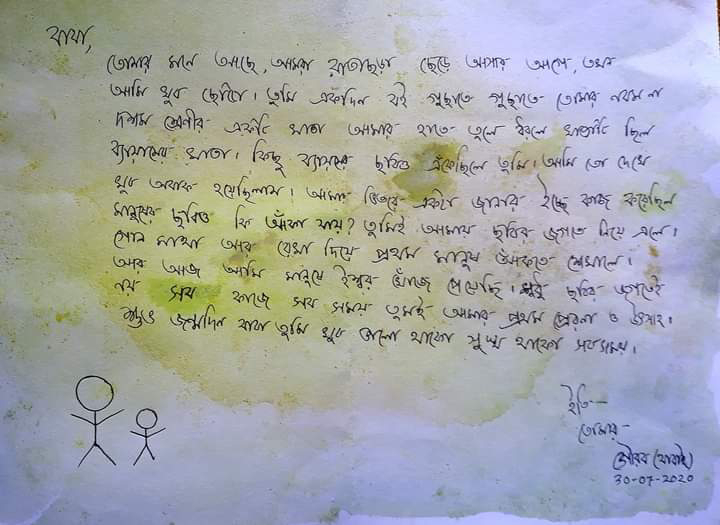 বাবা,
তোমার মনে আছে, আমরা যাতাছড়া ছেড়ে আসার আগে, তখন
আমি খুব ছোটো। তুমি একদিন বই গুছাতে গুছাতে তোমার নবম না
দশম শ্রেণীর একটা খাতা আমার হাতে তুলে ধরলে খাতাটা ছিল
ব্যায়ামের খাতা। কিছু ব্যায়ামের ছবিও এঁকেছিলে তুমি। আমি তো দেখে
খুব অবাক হয়েছিলাম। আমার ভিতরে একটা জানার ইচ্ছে কাজ করেছিল
মানুষের ছবিও কি আঁকা যায়? তুমিই আমায় ছবির জগতে নিয়ে এলে।
গোল মাথা আর রেখা দিয়ে প্রথম মানুষ আঁকতে শেখালে।
আর আজ আমি মানুষে ইশ্বর খোঁজে পেয়েছি। শুধু ছবির জগতেই
নয় সব কাজে সব সময় তুমই আমার প্রথম প্রেরনা ও উৎসাহ।
শুভ জন্মদিন বাবা তুমি খুব ভালো থাকো সুস্থ থাকো সবসময়।
ইতি—
তোমার
গৌরব
30-07-2020